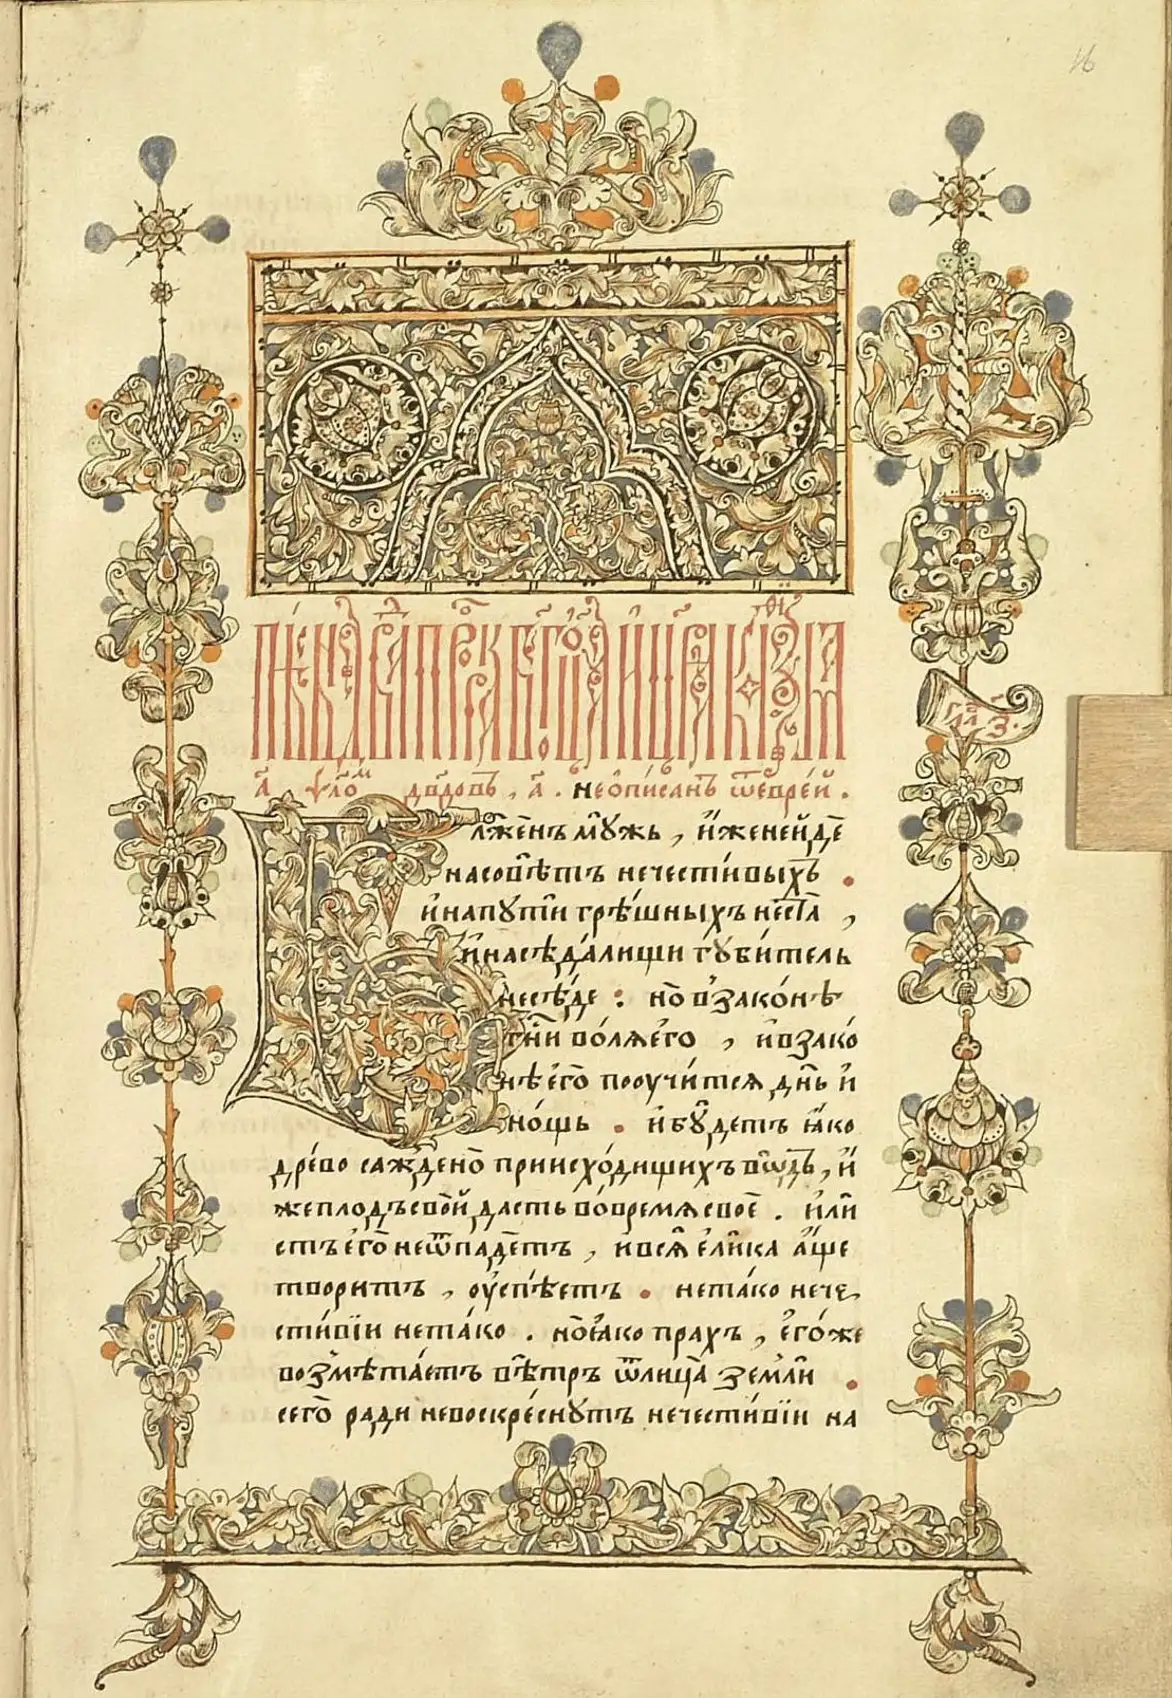 пѣснь давида прⷪ҇рка бг҃оѿца и цр҃ѧ
а҃ ѱало́мъ дв҃довъ, а҃. не ѻ҆пи́санъ ѿ є҆врє́й.
Блаже́нъ мꙋ́жь, и҆́же не и҆́де
на совѣ́тъ нечести́выхъ
и҆ на пꙋти́ грѣ́шныхъ не ста̀,
и҆ на сѣда́лищи гꙋби́тель
не сѣ́де: но̀ в҆ зако́нѣ
гн҇и во́лѧ є҆го̀, и҆ в зако́
нѣ є҆го̀ поꙋчи́тсѧ дн҃ь и҆
но́щь. и҆ бꙋ́детъ ꙗ҆́ко
дре́во сажде́но при и҆схо́дищихъ во́дъ, и҆́
же пло́дъ сво́й да́сть во́ времѧ своѐ. и҆ ли́
стъ є҆го̀ не ѿпаде́тъ, и҆ всѧ̀ є҆ли́ка а҆́ще
твори́тъ, ᲂу҆спѣ́етъ. не та́ко нече
сти́вїи не та́ко. но̀ ꙗ҆́ко пра́хъ, є҆го́же
возмѣта́етъ вѣ́тръ ѿ лица̀ землѝ
сего̀ ра́ди не воскре́снꙋтъ нечести́вїи на
гла҃ з҃.